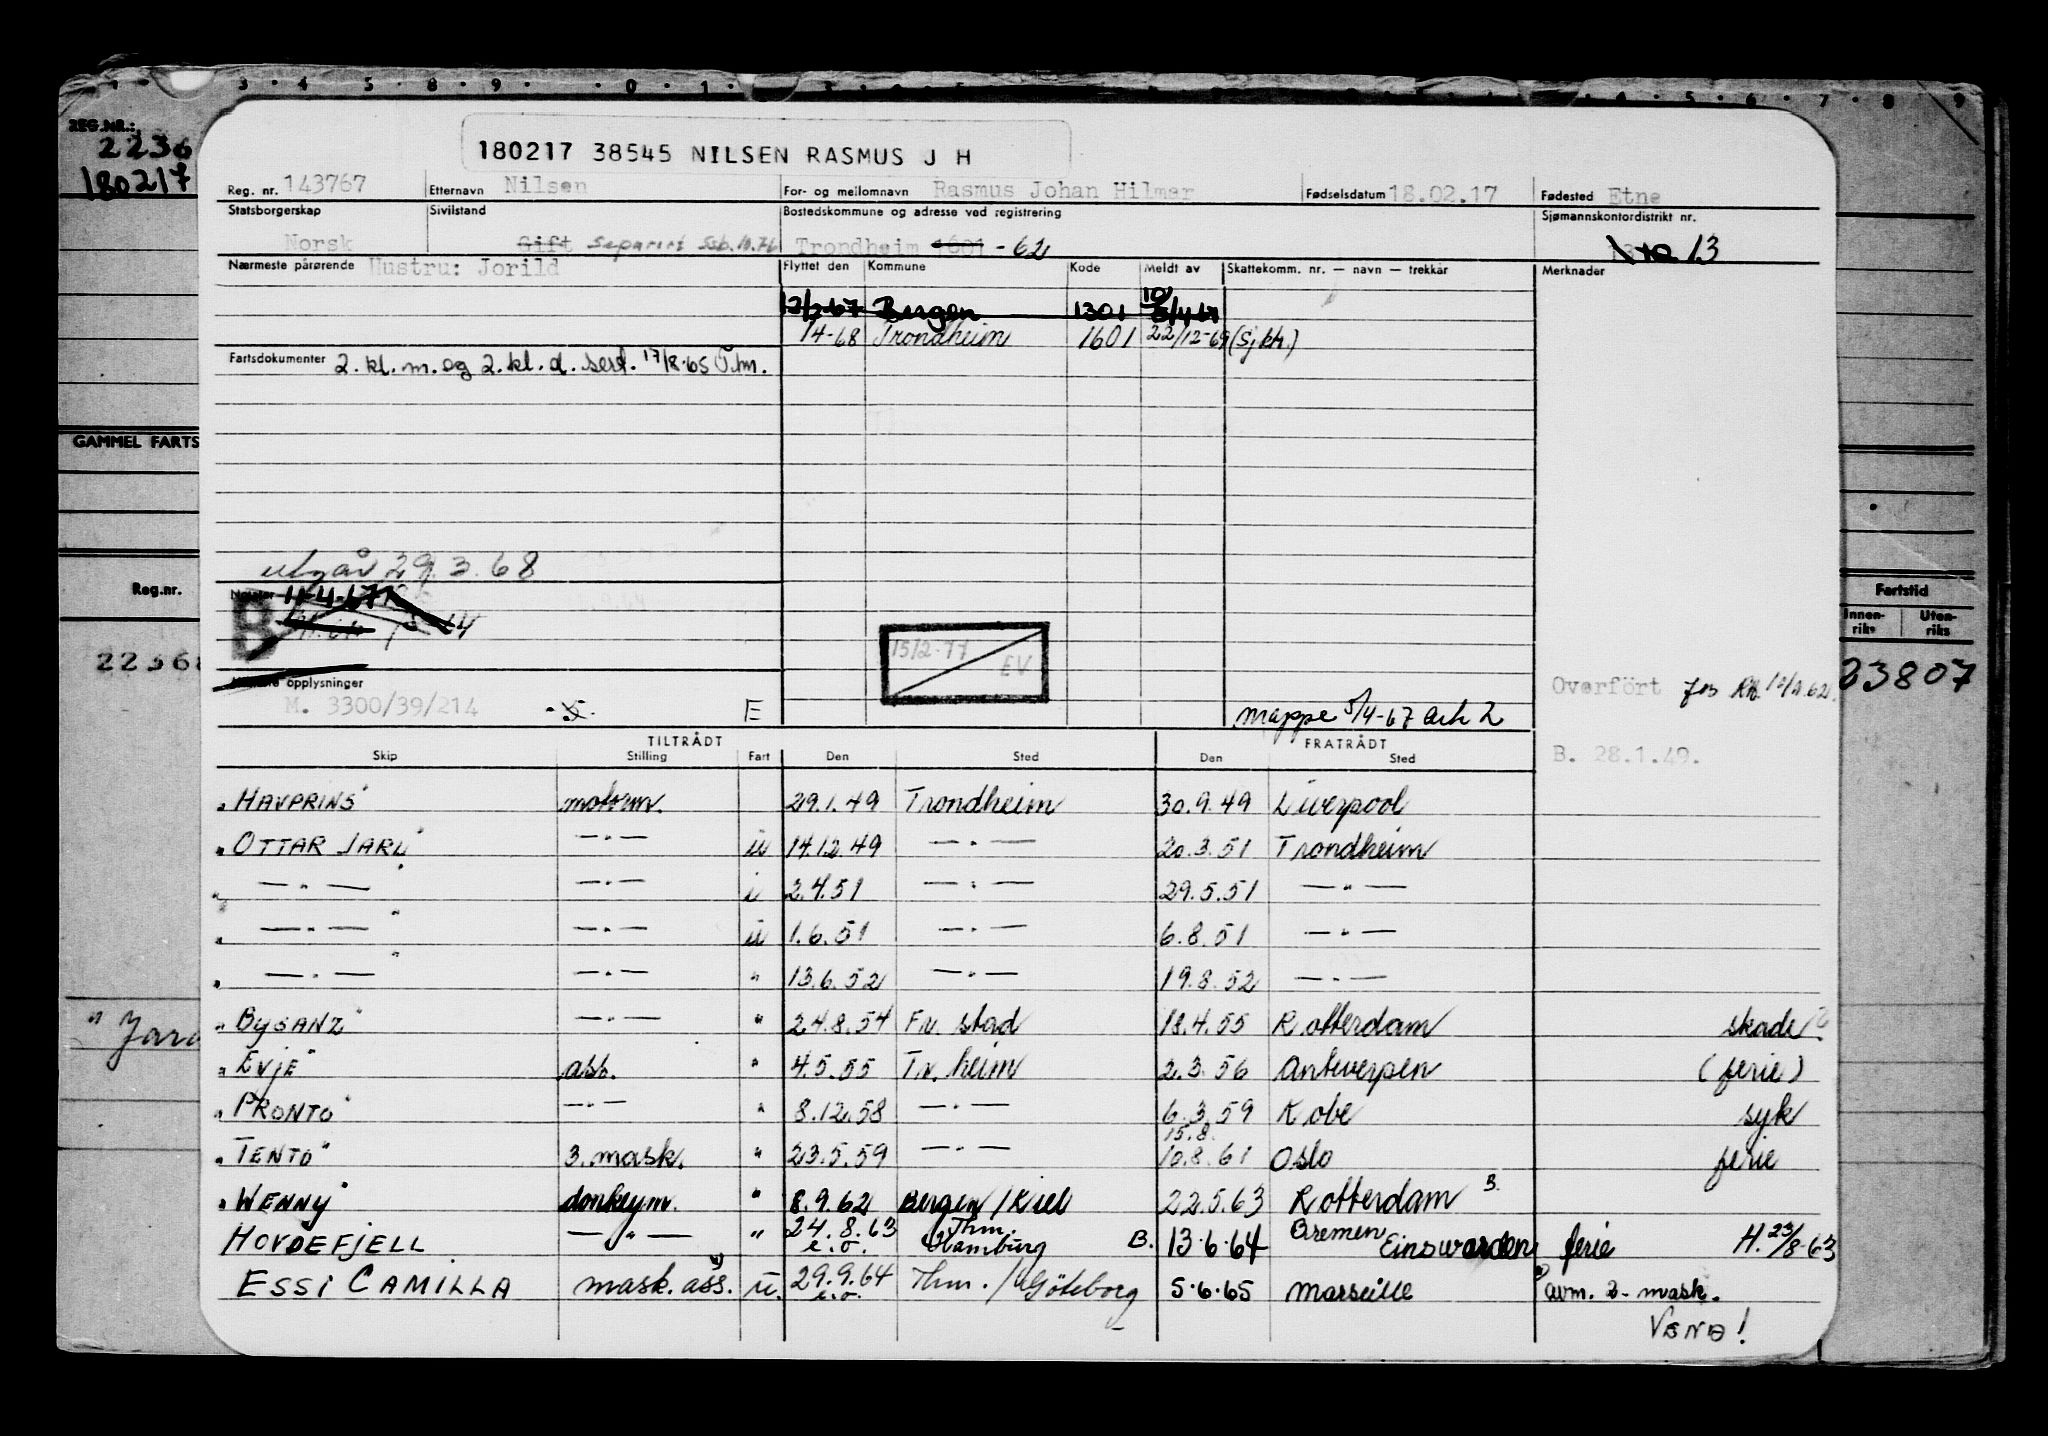 REG.NR.:
2236
180217
GAMMEL FARTS
Reg.nr.
2236
180217 38545 NILSEN RASMUS J H
Reg. nr. 143767 Etternavn Nilsen For- og mellomnavn Rasmus Johan Hilmar Fødselsdatum 18.02.17 Fødested Etne
Statsborgerskap Sivilstand Bostedskommune og adresse ved registrering Sjømannskontordistrikt nr.
Norsk Gift separert Ssb. 10.76 Trondheim 1601 - 62 13
Nærmeste pårørende Hustru: Jorild Flyttet den Kommune Kode Meldt av Skattekomm. nr. — navn — trekkår Merknader
12/2-67 Bergen 1301 10/4-67
1/4-68 Trondheim 1601 22/12-69 (Sj.ktr.)
Fartsdokumenter 2. kl. m. og 2. kl. d. sert. 17/8-65 Thm.
utgår 29.3.68
Notater 11-4-67
B
15/2-77 EV
Fartstid
Innen- riks Uten- riks
23807
opplysninger
M. 3300/39/214 E
Overført fra 62
mappe 5/4-67 ark 2
TILTRÅDT FRATRÅDT
Skip Stilling Fart Den Sted Den Sted
B. 28.1.49.
"HAVPRINS" motorm. 29.1.49 Trondheim 30.9.49 Liverpool
"OTTAR JARL" — " — u 14.12.49 — " — 20.3.51 Trondheim
" — " — " — " — i 2.4.51 — " — 29.5.51 — " —
" — " — " — " — u 1.6.51 — " — 6.8.51 — " —
" — " — " — " — " 13.6.52 — " — 19.8.52 — " —
"BYSANZ" — " — " 24.8.54 Fr. stad 18.4.55 Rotterdam skade
"EVJE" ass. " 4.5.55 Tr. heim 2.3.56 Antwerpen (ferie)
"PRONTO" — " — " 8.12.58 — " — 6.3.59 Kobe syk
15.8.
"TENTO" 3. mask. " 23.5.59 — " — 10.8.61 Oslo ferie
"WENNY" donkeym. " 8.9.62 Bergen/Kiel 22.5.63 Rotterdam B.
HOVDEFJELL — " — " 24.8.63 e.o. Thm. Hamburg B. 13.6.64 Bremen Einswarden ferie H. 23/8-63
ESSI CAMILLA mask. ass. u. 29.9.64 e.o. Thm./Göteborg 5.6.65 Marseille avm. 2. mask.
VEND!